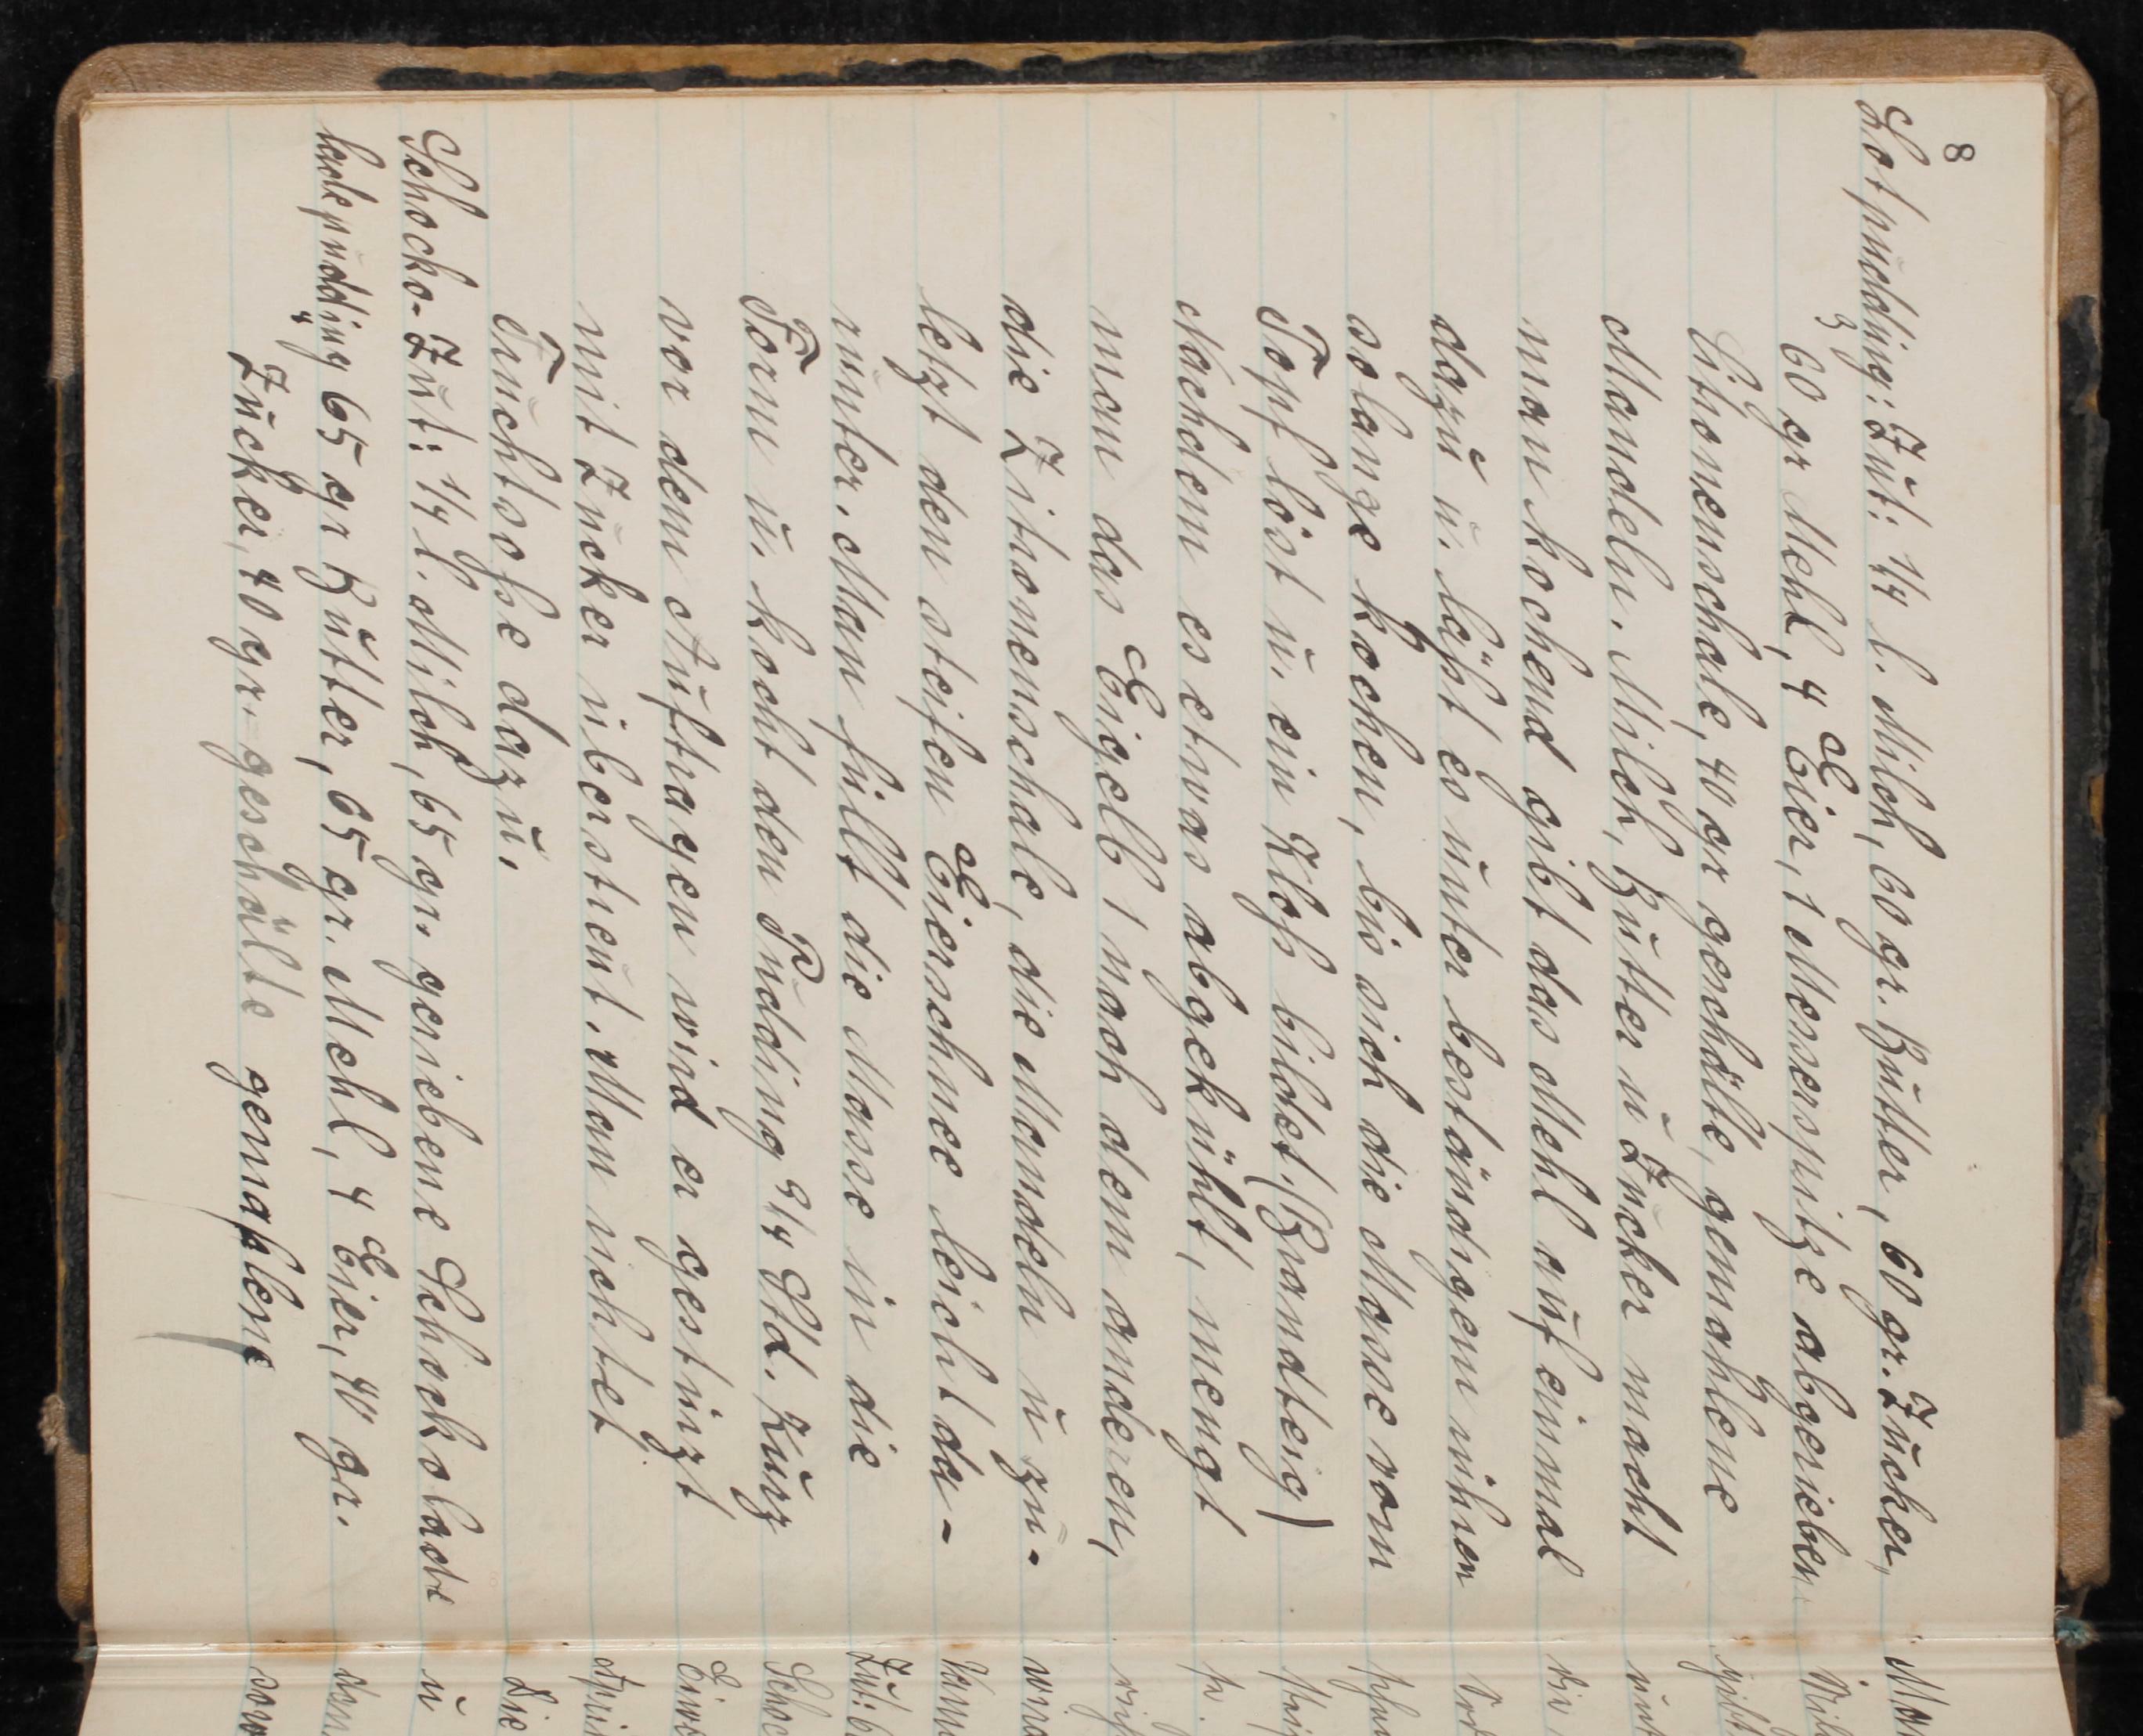 8
Lotpudding: Zut: 1/4 l. Milch, 60 gr. Butter, 60 gr. Zucker,
3 60 gr Mehl, 4 Eier, 1 Messerspitze abgerieben
Citronenschale, 40 gr geschälte, gemahlene
Mandeln. Milch, Butter u Zucker macht
man kochend gibt das Mehl auf einmal
dazu u. läßt es unter beständigem rühren
solange kochen, bis sich die Masse vom
Topf löst u. ein Kloß bildet. (Brandteig)
Nachdem es etwas abgekühlt, mengt
man das Eigelb 1 nach dem anderen,
die Zitronenschale, die Mandeln u zu-
letzt den steifen Eierschnee leicht da-
runter. Man füllt die Masse in die
Form u. kocht den Pudding 3/4 Std. Kurz
vor dem Auftragen wird er gestürzt
mit Zucker überstreut. Man richtet
Fruchtsoße dazu.
Schocko- Zut: 1/4 l. Milch, 65 gr. geriebene Schockolade
ladepudding 65 gr Butter, 65 gr. Mehl, 4 Eier, 40 gr.
" Zucker, 40 gr. geschälte gemahlene